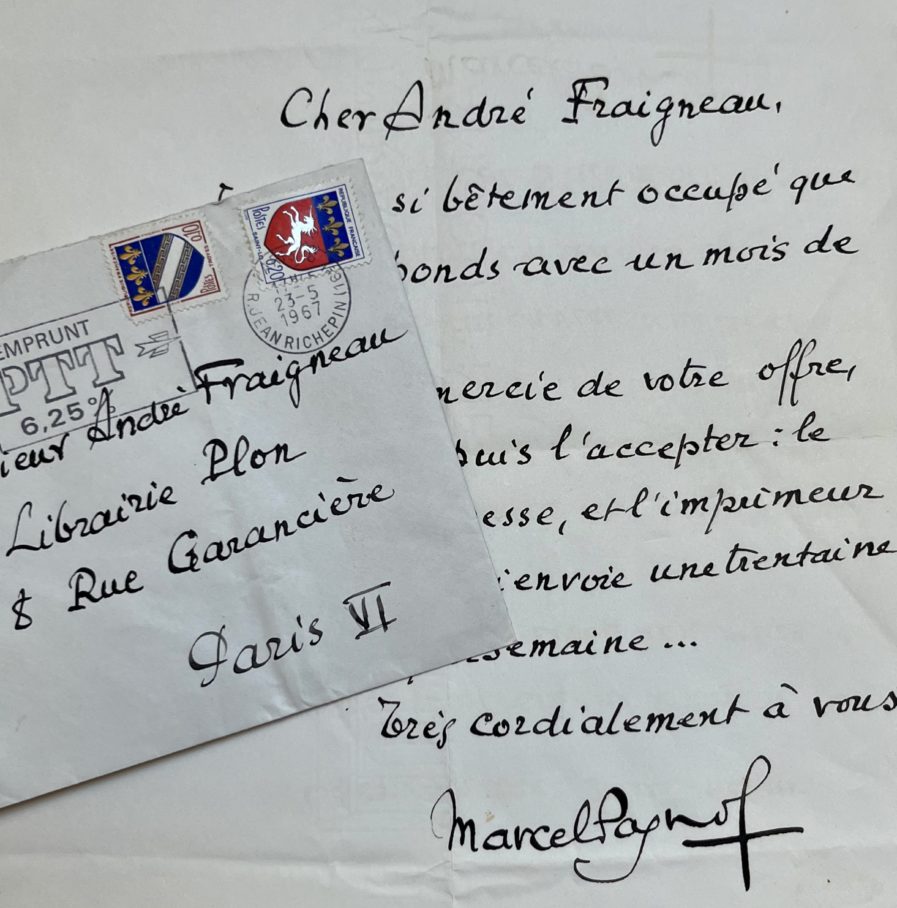 Cher André Fraigneau,
si bêtement occupé que
ponds avec un mois de
mercie de votre offre,
puis l'accepter : le
esse, et l'imprimeur
'envoie une trentaine
semaine ...
Très cordialement à vous
Marcel Pagnol
0,10
POSTES
RÉPUBLIQUE FRANÇAISE
POSTES
0,20
SAINT-LO
23-5
1967
R. JEAN RICHEPIN (16
EMPRUNT
PTT
6,25%
ieur André Fraigneau
Librairie Plon
8 Rue Garancière
Paris VI